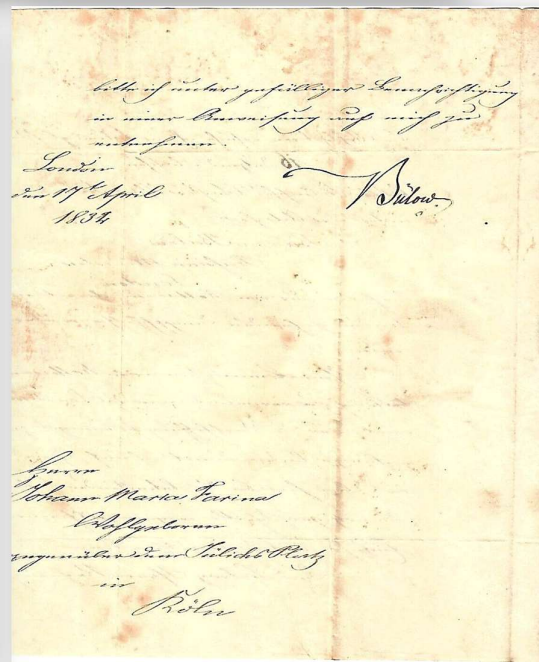 bitte ich unter gefälliger Benachrichtigung
in einer Anweisung auf mich zu
entnehmen.
London
den 17t April
1834
Bülow
Herrn
Johann Maria Farina
Wohlgeboren
gegenüber dem Jülichs Platz
in
Köln